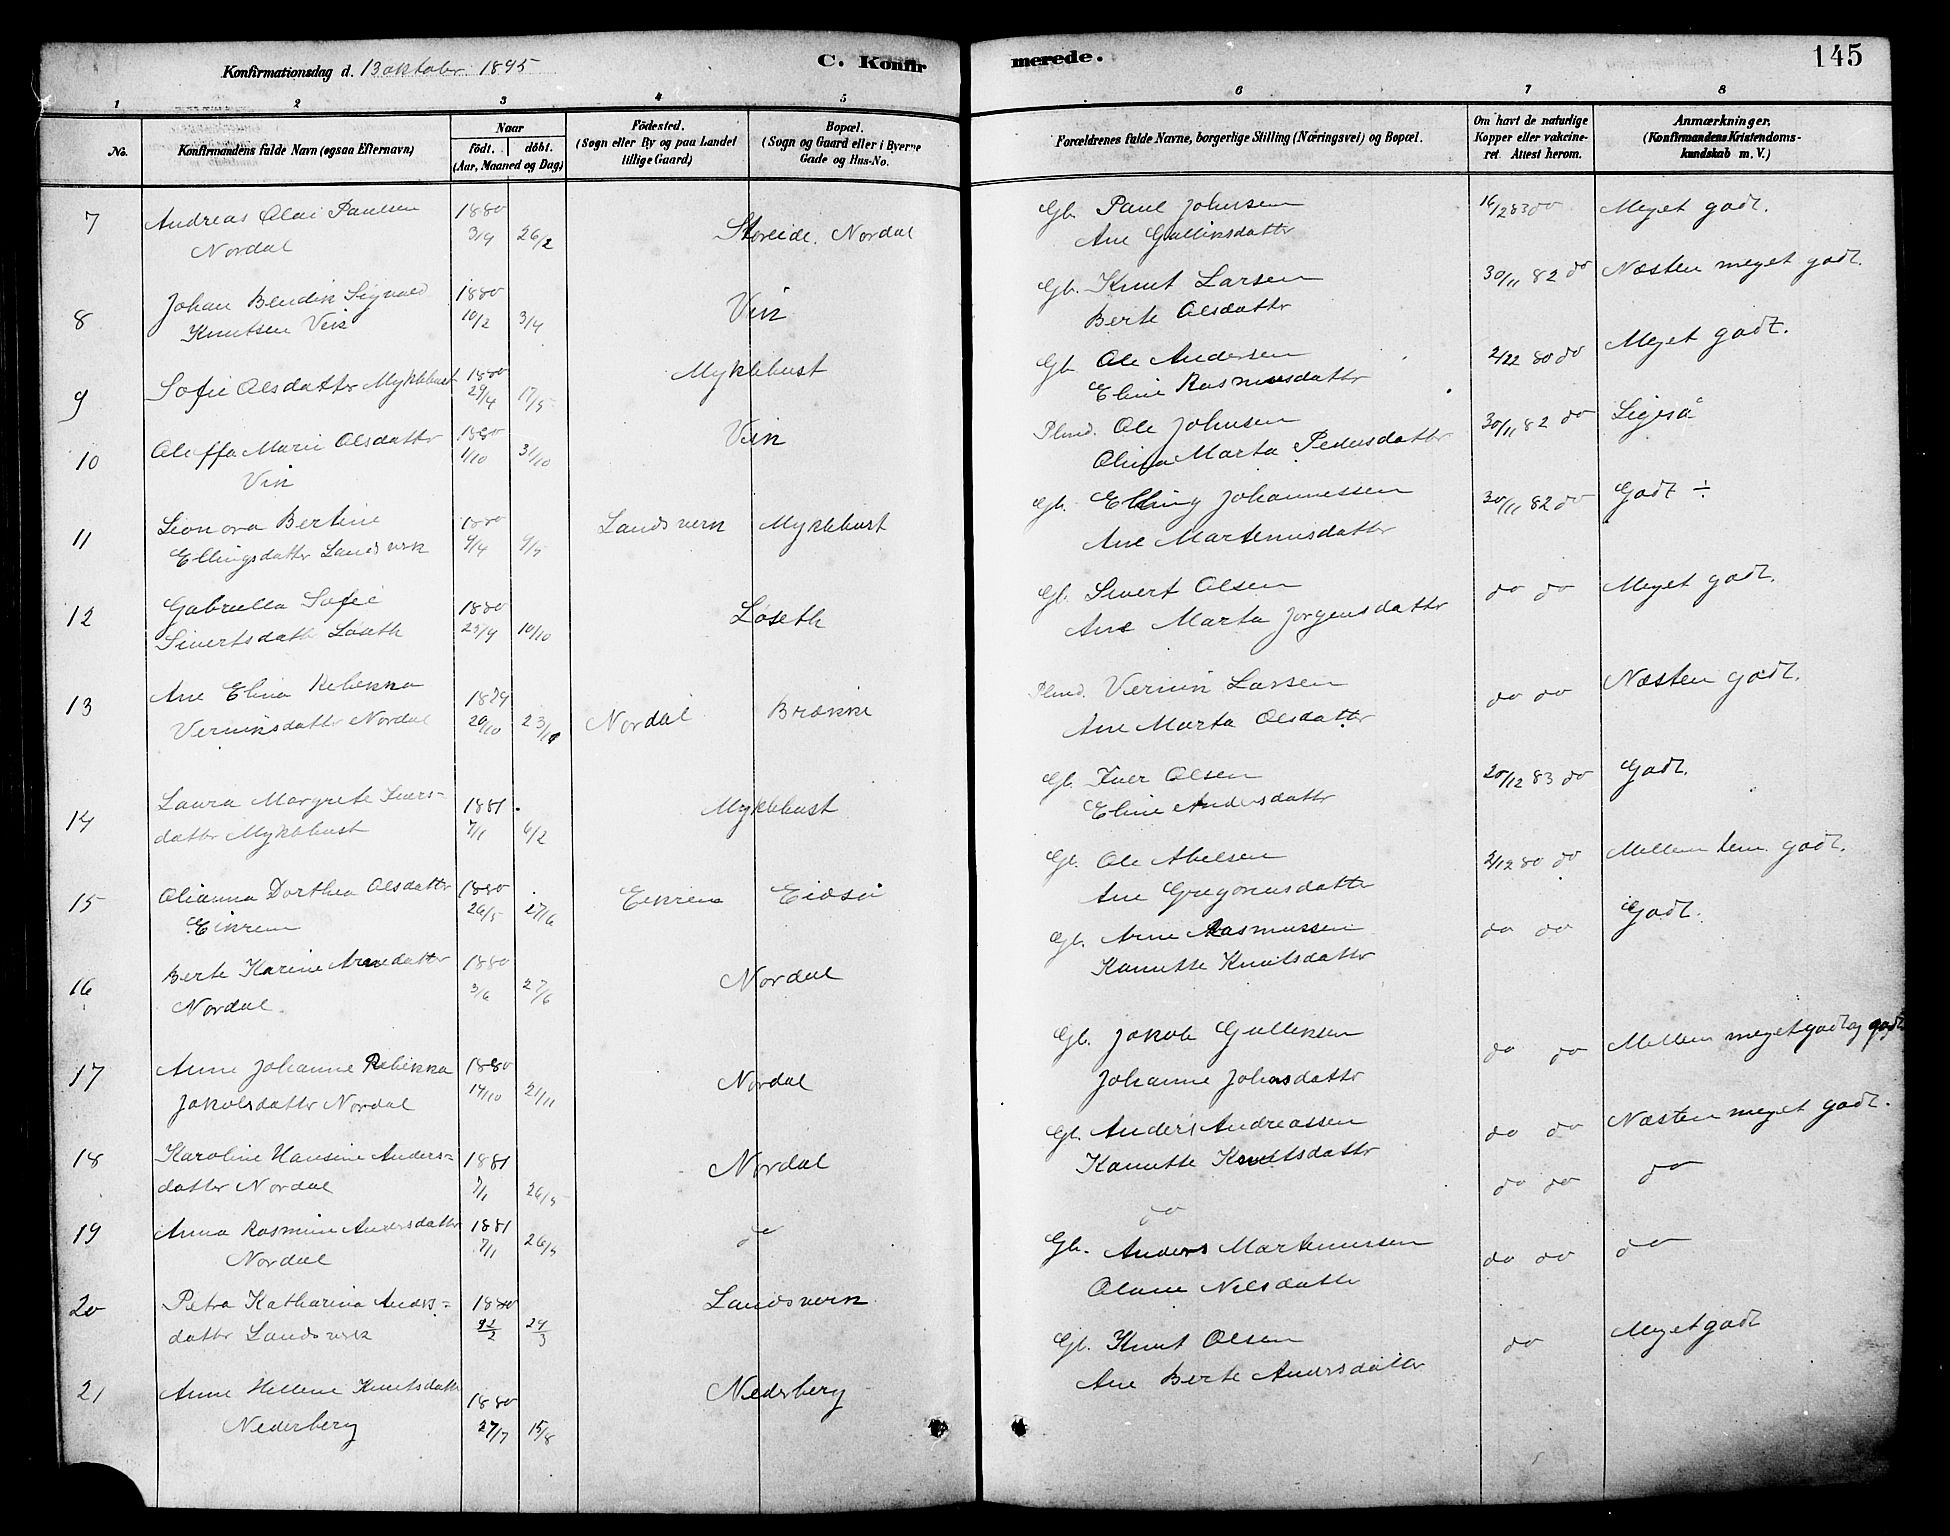 Konfirmationsdag d. 13 oktober 1895
C. Konfir
merede.
145
1 2 3 4 5 6 7 8
No.
Konfirmandens fulde Navn (ogsaa Efternavn)
Naar
Födt. döbt.
(Aar, Maaned og Dag)
Födested.
(Sogn eller By og paa Landet
tillige Gaard)
Bopæl.
(Sogn og Gaard eller i Byerne
Gade og Hus-No.
Forældrenes fulde Navne, borgerlige Stilling (Næringsvei) og Bopæl.
Om havt de naturlige
Kopper eller vakcine-
ret. Attest herom.
Anmærkninger,
(Konfirmandens Kristendoms-
kundskab m. V.)
7 Andreas Olai Paulsen 1880 Storeide. Nordal Gb. Paul Johnsen 16/2 83 do Meget godt.
Nordal 26/2 Ane Gulliksdattr
8 Johan Bendik Sigvald 1880 Vik Gb. Knut Larsen 30/11 82 do Næsten meget godt.
Knutsen Vik 10/2 3/4 Berte Olsdattr
9 Sofie Olsdattr Myklebust 1880 Myklebust Gb. Ole Andersen 80 do Meget godt.
29/4 17/5 Eline Rasmusdattr
10 Oluffa Marie Olsdattr 1880 Vik Plmd. Ole Johnsen 30/11 82 do Ligeså
Vik 1/10 31/10 Marta Pedersdattr
11 Leonora Bertine 1880 Landsverk Myklebust Gb. Elling Johannessen 30/11 82 do Godt ÷
Ellingsdatter Landsverk 9/4 9/5 Ane Martinusdatter
12 Gabriella Sofie 1880 Løseth Gb. Sivert Olsen do do Meget godt.
Sivertsdattr Løseth 10/10 Ane Marta Jørgensdattr
13 Ane Elina Rebekka 1879 Nordal Brække Plmd. Vernik Larsen do do Næsten godt.
Verniksdatter Nordal 20/10 Ane Marta Olsdattr
14 Laura Margrete Ivers- 1881 Myklebust Gb. Iver Olsen 20/12 83 do Godt.
datter Myklebust 7/1 6/2 Eline Andersdattr
15 Olianna Dorthea Olsdattr 1880 Eikrem Eidså Gb. Ole Abelsen 2/12 80 do Mellem tem. godt.
Eikrem 26/5 27/6 Ane Gregoriusdattr
16 Berte Karine Arnedatter 1880 Nordal Gb. Arne Rasmussen do do Godt.
Nordal. 3/6 27/6 Kanutte Knutsdattr
17 Anne Johanne Rebekka 1880 Nordal Gb. Jakob Gulliksen do do Mellem meget godt og godt
Jakobsdatter Nordal 14/10 21/11 Johanne Johnsdattr
18 Karoline Hansine Anders- 1881 Nordal Gb. Anders Andreassen do do Næsten meget godt.
datter Nordal 7/1 26/5 Kanutte Knutsdattr
19 Anna Rasmine Andersdattr 1881 do do do do do
Nordal 7/1 26/5
20 Petra Katharina Anders- 1880 Landsverk Gb. Anders Martinussen do do do
datter Landsverk 22/2 29/3 Olave Nilsdattr
21 Anne Hellene Knutsdattr 1880 Nederberg Gb. Knut Olsen do Meget godt
Nederberg 27/7 15/8 Ane Berte Andersdatter